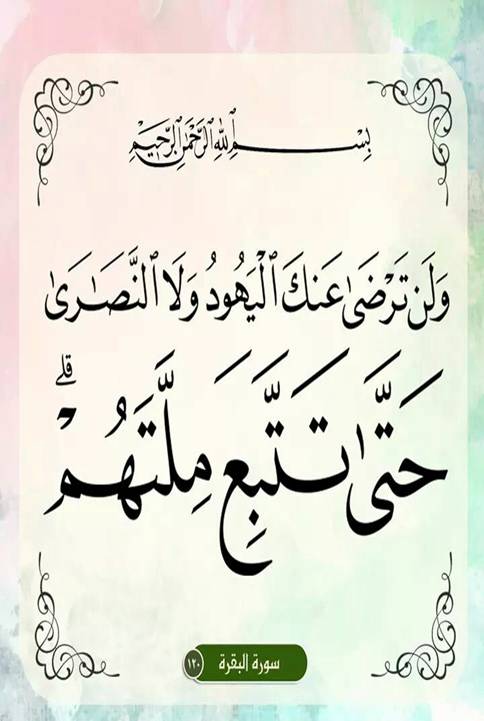 بِسْمِ ٱللَّهِ ٱلرَّحْمَٰنِ ٱلرَّحِيمِ
وَلَن تَرْضَىٰ عَنكَ ٱلْيَهُودُ وَلَا ٱلنَّصَٰرَىٰ
حَتَّىٰ تَتَّبِعَ مِلَّتَهُمْ ۗ
سورة البقرة ١٢٠